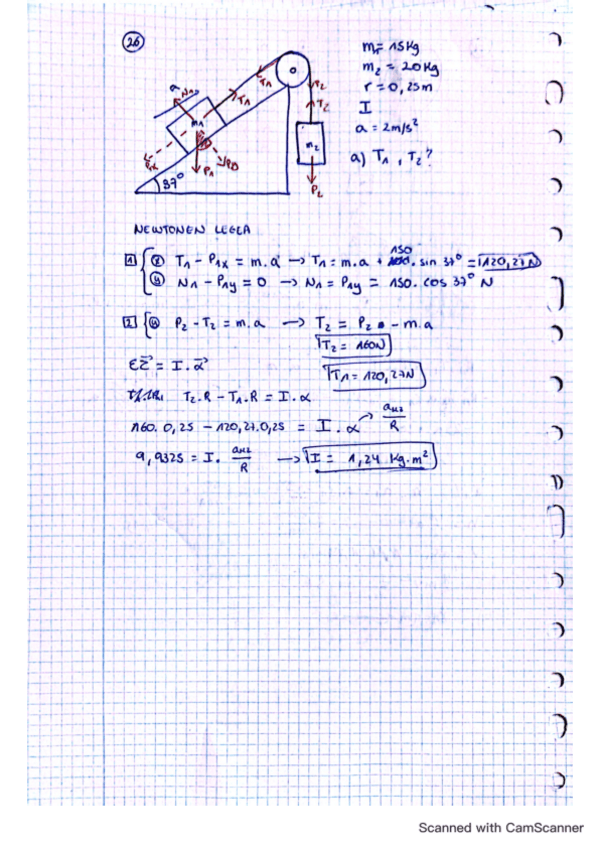 26
m₁ = 15 kg
m₂ = 20 kg
r = 0,25 m
I
a = 2 m/s²
a) T₁, T₂?
a N₁ T₁ T₁ T₂
m₁ T₂
P₁ m₂
37° P₂
NEWTONEN LEGEA
1 x T₁ - P₁x = m.a → T₁ = m.a + 150 . sin 37° = 120,27 N
y N₁ - P₁y = 0 → N₁ = P₁y = 150 . cos 37° N
2 y P₂ - T₂ = m.a → T₂ = P₂ - m.a
T₂ = 160 N
T₁ = 120,27 N
Σ = I . α
T₂.R - T₁.R = I . α
160. 0,25 - 120,27. 0,25 = I . α → R
9,9325 = I . R → I = 1,24 kg.m²
Scanned with CamScanner